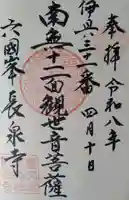 奉拝 令和八年
伊興三十一番 四月十日
南無十一面観世音菩薩
六國峯長泉寺